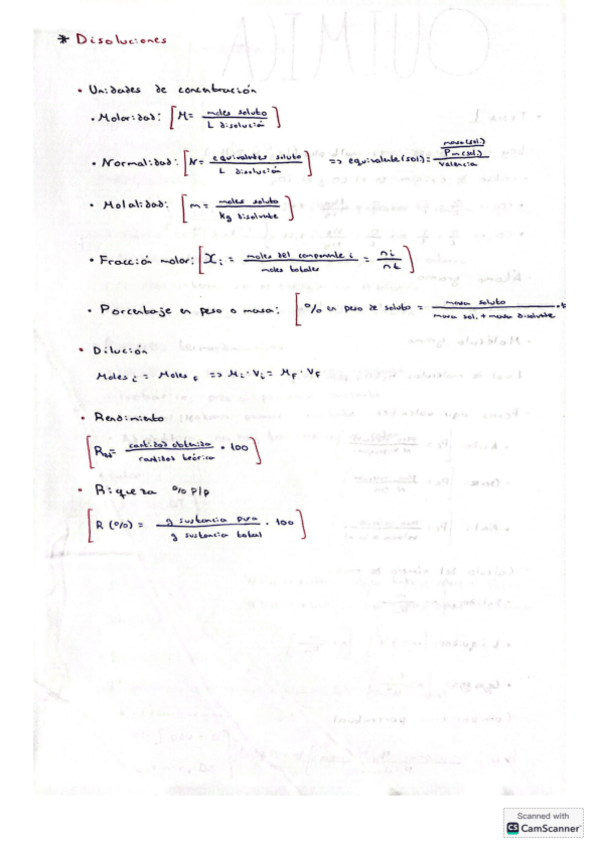 * Disoluciones
• Unidades de concentración
• Molaridad: [M = moles soluto / L disolución]
• Normalidad: [N = equivalentes soluto / L disolución] => equivalente (sol.) = masa (sol.) / Pm (sol.) / valencia
• Molalidad: [m = moles soluto / Kg disolvente]
• Fracción molar: [Xi = moles del componente i / moles totales = ni / nt]
• Porcentaje en peso o masa: [% en peso de soluto = masa soluto / masa sol. + masa disolvente ·
• Dilución
Moles i = Moles f => Mi · Vi = Mf · Vf
• Rendimiento
cantidad obtenida / cantidad teórica · 100]
• Riqueza % p/p
[R (%) = g sustancia pura / g sustancia total · 100]
Scanned with
CS CamScanner